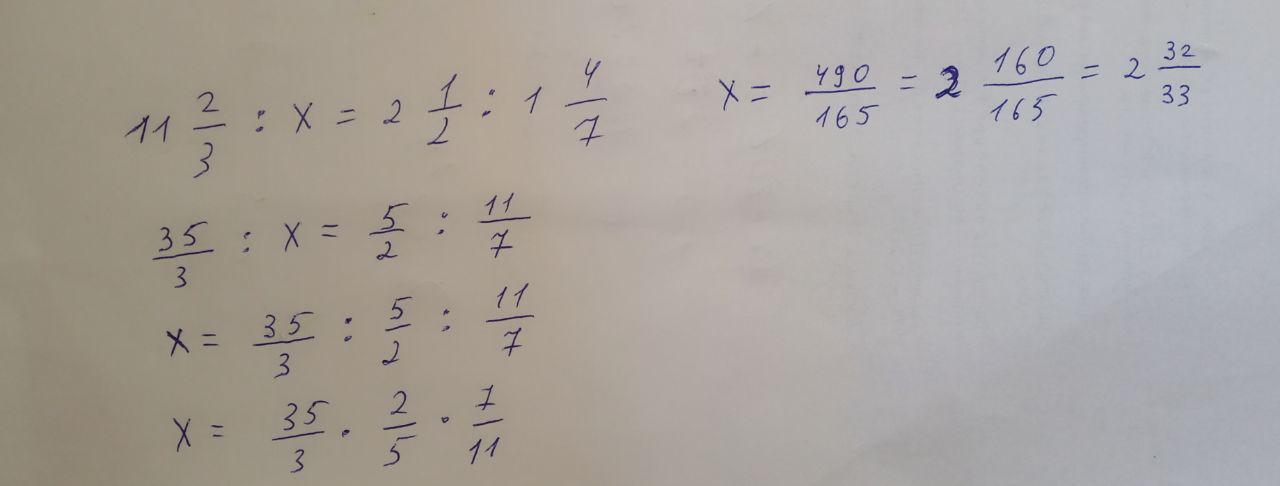 11 2/3 : x = 2 1/2 : 1 4/7
35/3 : x = 5/2 : 11/7
x = 35/3 : 5/2 : 11/7
x = 35/3 · 2/5 · 7/11
x = 490/165 = 2 160/165 = 2 32/33